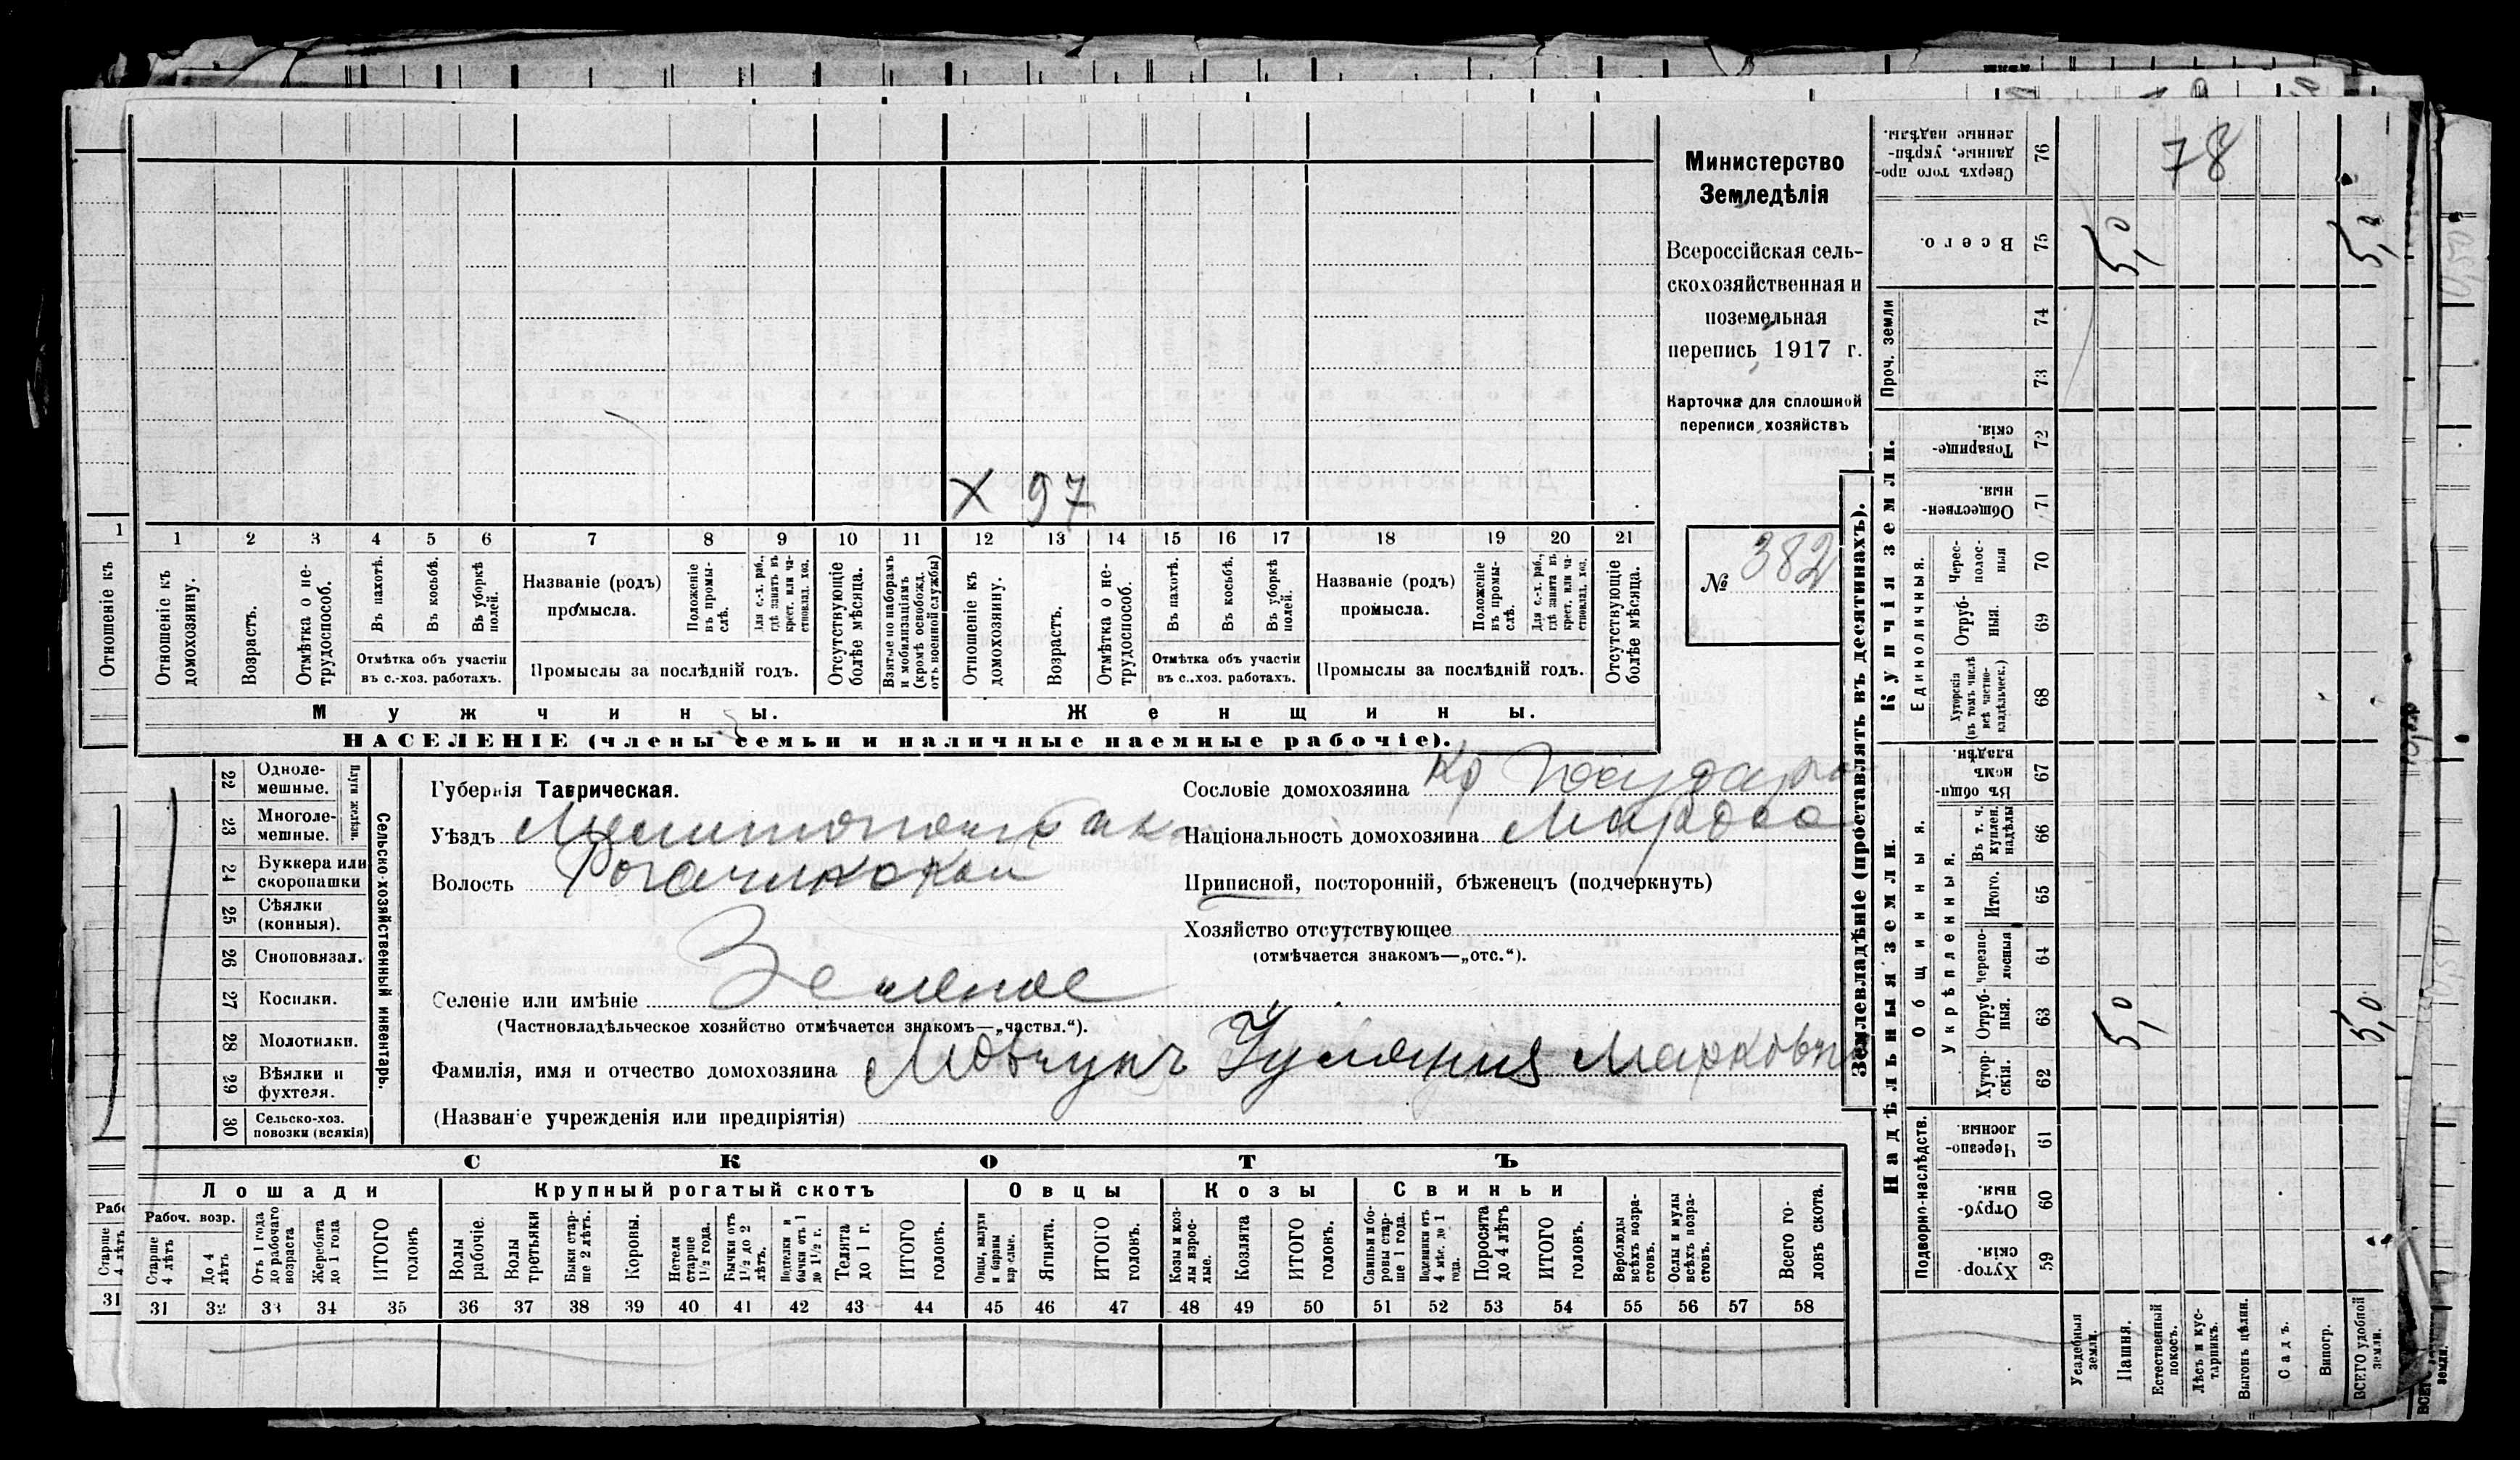 Министерство
Земледѣлія
Всероссійская сель-
скохозяйственная и
поземельная
перепись 1917 г.
Карточка для сплошной
переписи хозяйствъ
№ 382
78
Х 97
1 2 3 4 5 6 7 8 9 10 11 12 13 14 15 16 17 18 19 20 21
Отношеніе къ домохозяину.
Возрастъ.
Отмѣтка о не-трудоспособ.
Въ пахотѣ.
Въ косьбѣ.
Въ уборкѣ полей.
Отмѣтка объ участіи
въ с.-хоз. работахъ.
Названіе (родъ)
промысла.
Положеніе въ промы-слѣ.
Для с.-х. раб., гдѣ занятъ въ крест. или ча-стновлад. хоз.
Промыслы за послѣдній годъ.
Отсутствующіе болѣе мѣсяца.
Взятые по наборамъ и мобилизаціямъ (кромѣ освобожд. отъ военной службы)
Отношеніе къ домохозяину.
Возрастъ.
Отмѣтка о не-трудоспособ.
Въ пахотѣ.
Въ косьбѣ.
Въ уборкѣ полей.
Отмѣтка объ участіи
въ с.-хоз. работахъ.
Названіе (родъ)
промысла.
Положеніе въ промы-слѣ.
Для с.-х. раб., гдѣ занята въ крест. или ча-стновлад. хоз.
Промыслы за послѣдній годъ.
Отсутствующіе болѣе мѣсяца.
Мужчины.
Женщины.
НАСЕЛЕНІЕ (члены семьи и наличные наемные рабочіе).
Сельско-хозяйственный инвентарь.
22 Одноле-мешные.
23 Многоле-мешные.
24 Буккера или скоропашки
25 Сѣялки (конныя).
26 Сноповязал.
27 Косилки.
28 Молотилки.
29 Вѣялки и фухтеля.
30 Сельско-хоз. повозки (всякія)
Губернія Таврическая.
Уѣздъ
Волость
Селеніе или имѣніе Зеленое
(Частновладѣльческое хозяйство отмѣчается знакомъ—„частвл.“).
Фамилія, имя и отчество домохозяина Мовчунъ
(Названіе учрежденія или предпріятія)
Сословіе домохозяина Кр
Національность домохозяина
Приписной, посторонній, бѣженец (подчеркнуть)
Хозяйство отсутствующее
(отмѣчается знакомъ—„отс.“).
СКОТЪ
Лошади
Крупный рогатый скотъ
Овцы
Козы
Свиньи
Рабоч. возр.
Старше 4 лѣтъ
До 4 лѣтъ
Отъ 1 года до рабочаго возраста
Жеребята до 1 года
ИТОГО головъ
Волы рабочіе.
Волы третьяки
Быки стар-ше 2 лѣтъ.
Коровы.
Нетели старше 1½ года.
Бычки отъ 1½ до 2 лѣтъ.
Подтелки и бычки отъ 1 до 1½ г.
Телята до 1 г.
ИТОГО головъ.
Овцы, валухи и бараны взрослые.
Ягнята.
ИТОГО головъ.
Козы и коз-лы взрос-лые.
Козлята
ИТОГО головъ.
Свиньи и бо-ровы стар-ше 1 года.
Подсвинки отъ 4 мѣс. до 1 года.
Поросята до 4 лѣтъ
ИТОГО головъ.
Верблюды всѣхъ возра-стовъ.
Ослы и мулы всѣхъ возра-стовъ.
Всего го-ловъ скота.
31 32 33 34 35 36 37 38 39 40 41 42 43 44 45 46 47 48 49 50 51 52 53 54 55 56 57 58
Землевладѣніе (проставлять въ десятинахъ).
Надѣльныя земли.
Купчія земли.
Проч. земли
Подворно-наслѣдств.
Общинныя.
Укрѣпленныя.
Единоличныя.
Сверхъ того про-данные, укрѣп-ленные надѣлы. 76
Всего. 75 5,0 5,0
74
73
Товарище-скія. 72
Обществен-ныя. 71
Черес-полос-ныя 70
Отруб-ныя. 69
Хуторскія (въ томъ числѣ всѣ частно-владѣльческ.) 68
Въ общин-номъ владѣн. 67
Въ т. ч. куплен. надѣлы 66
Итого. 65
Черезпо-лосныя 64
Отруб-ныя. 63 5,0 5,0
Хутор-скія. 62
Черезпо-лосныя. 61
Отруб-ныя. 60
Хутор-скія. 59
Усадебныя земли.
Пашня.
Естественный покосъ.
Лѣсъ и кус-тарникъ.
Выгонъ цѣлин.
Садъ.
Виногр.
ВСЕГО удобной земли.